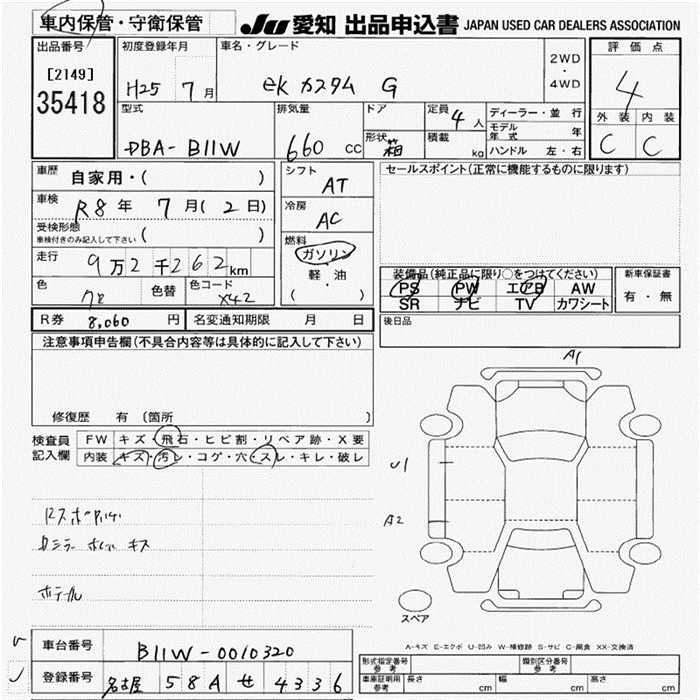 車内保管・守衛保管 JU 愛知 出品申込書 JAPAN USED CAR DEALERS ASSOCIATION
出品番号 初度登録年月 車名・グレード 2WD・4WD 評価点
[2149] 35418 H25 7月 ek カスタム G 4
型式 排気量 ドア 定員 4人 ディーラー・並行 外装 内装
DBA-B11W 660 CC 形状 箱 積載 kg モデル年式 年 C C
ハンドル 左・右
車歴 自家用・( ) シフト AT セールスポイント(正常に機能するものに限ります)
車検 R8年 7月(2日) 冷房 AC
受検形態 車検付きのみ記入して下さい ( )
走行 9万2千262km 燃料 ガソリン 軽・油 ( )
色 色替 色コード X42
装備品(純正品に限り○をつけてください) 新車保証書
PS PW エアB AW 有・無
SR ナビ TV カワシート
R券 8,060円 名変通知期限 月 日 後日品
注意事項申告欄(不具合内容等は具体的に記入して下さい)
修復歴 有 〔箇所
検査員記入欄 FW キズ・飛石・ヒビ割・リペア跡・X要
内装 キズ・汚レ・コゲ・穴・スレ・キレ・破レ
A1
U1
A2
スペア
A-キズ E-エクボ U-凹み W-補修跡 S-サビ C-腐食 XX-交換済
車台番号 B11W-0010320
登録番号 名古屋 58A せ 4336
形式指定番号 参考 類別区分番号 参考
車庫証明用 参考 長さ cm 幅 cm 高さ cm